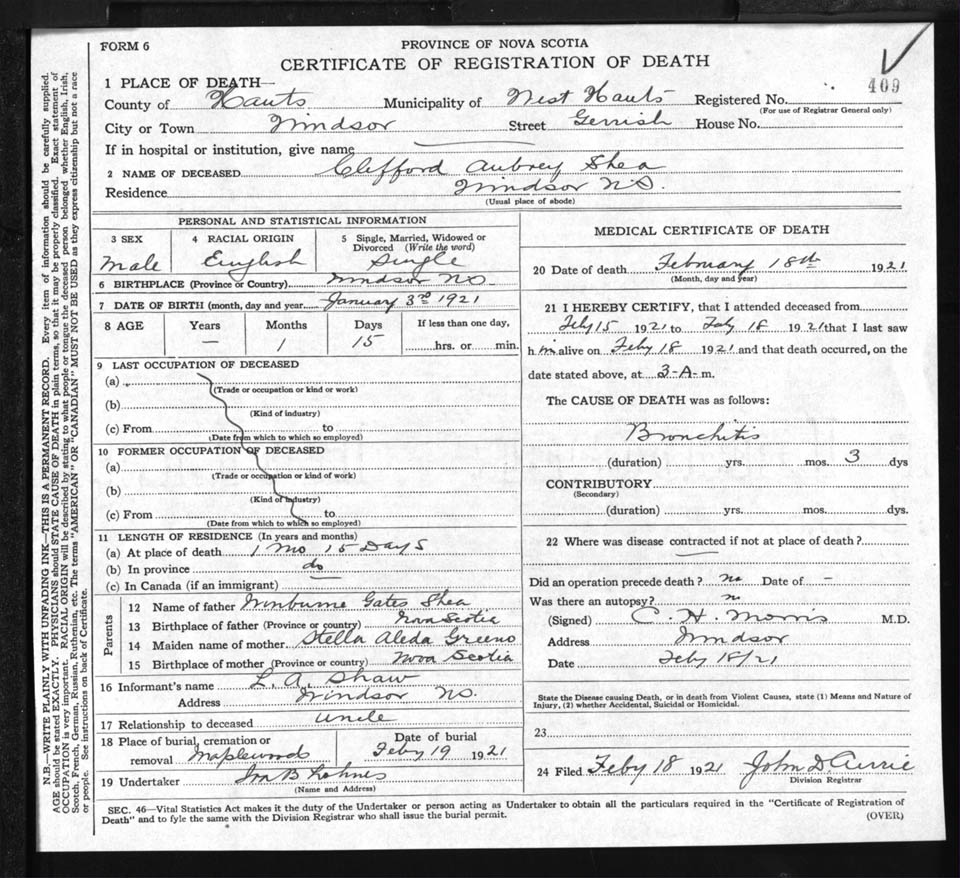 FORM 6
PROVINCE OF NOVA SCOTIA
CERTIFICATE OF REGISTRATION OF DEATH
409
1 PLACE OF DEATH—
County of Hants Municipality of West Hants Registered No.
(For use of Registrar General only)
City or Town Windsor Street Gerrish House No.
If in hospital or institution, give name
2 NAME OF DECEASED Clifford Aubrey Shea
Residence Windsor N.S.
(Usual place of abode)
PERSONAL AND STATISTICAL INFORMATION
3 SEX 4 RACIAL ORIGIN 5 Single, Married, Widowed or Divorced (Write the word)
Male English Single
6 BIRTHPLACE (Province or Country) Windsor NS
7 DATE OF BIRTH (month, day and year January 3rd 1921
8 AGE Years Months Days If less than one day,
— 1 15 hrs. or min.
9 LAST OCCUPATION OF DECEASED
(a)
(Trade or occupation or kind or work)
(b)
(Kind of industry)
(c) From to
(Date from which to which so employed)
10 FORMER OCCUPATION OF DECEASED
(a)
(Trade or occupation or kind of work)
(b)
(Kind of industry)
(c) From to
(Date from which to which so employed)
11 LENGTH OF RESIDENCE (In years and months)
(a) At place of death 1 Mo 15 Days
(b) In province do
(c) In Canada (if an immigrant)
Parents
12 Name of father Winburne Gates Shea
13 Birthplace of father (Province or country) Nova Scotia
14 Maiden name of mother Stella Aleda Greeno
15 Birthplace of mother (Province or country) Nova Scotia
16 Informant's name L. A. Shaw
Address Windsor NS.
17 Relationship to deceased Uncle
18 Place of burial, cremation or removal Maplewood Date of burial Feby 19 1921
19 Undertaker B Lohnes
(Name and Address)
MEDICAL CERTIFICATE OF DEATH
20 Date of death February 18th 1921
(Month, day and year)
21 I HEREBY CERTIFY, that I attended deceased from
Feby 15 1921 to Feby 18 1921 that I last saw
h im alive on Feby 18 1921 and that death occurred, on the
date stated above, at 3-A- m.
The CAUSE OF DEATH was as follows:
Bronchitis
(duration) yrs. mos. 3 dys
CONTRIBUTORY
(Secondary)
(duration) yrs. mos. dys.
22 Where was disease contracted if not at place of death?
Did an operation precede death? no Date of –
Was there an autopsy? no
(Signed) C. H. Morris M.D.
Address Windsor
Date Feby 18/21
State the Disease causing Death, or in death from Violent Causes, state (1) Means and Nature of
Injury, (2) whether Accidental, Suicidal or Homicidal.
23
24 Filed Feby 18 1921 John D. Currie
Division Registrar
SEC. 46—Vital Statistics Act makes it the duty of the Undertaker or person acting as Undertaker to obtain all the particulars required in the "Certificate of Registration of
Death" and to fyle the same with the Division Registrar who shall issue the burial permit.
(OVER)
N.B.—WRITE PLAINLY WITH UNFADING INK—THIS IS A PERMANENT RECORD. Every item of information should be carefully supplied.
AGE should be stated EXACTLY. PHYSICIANS should STATE CAUSE OF DEATH in plain terms, so that it may be properly classified. Exact statement of
OCCUPATION is very important. RACIAL ORIGIN will be described by stating to what people or tongue the deceased person belonged whether English, Irish,
Scotch, French, German, Russian, Ruthenian, etc. The terms "AMERICAN" OR "CANADIAN" MUST NOT BE USED as they express citizenship but not a race
or people. See instructions on back of Certificate.